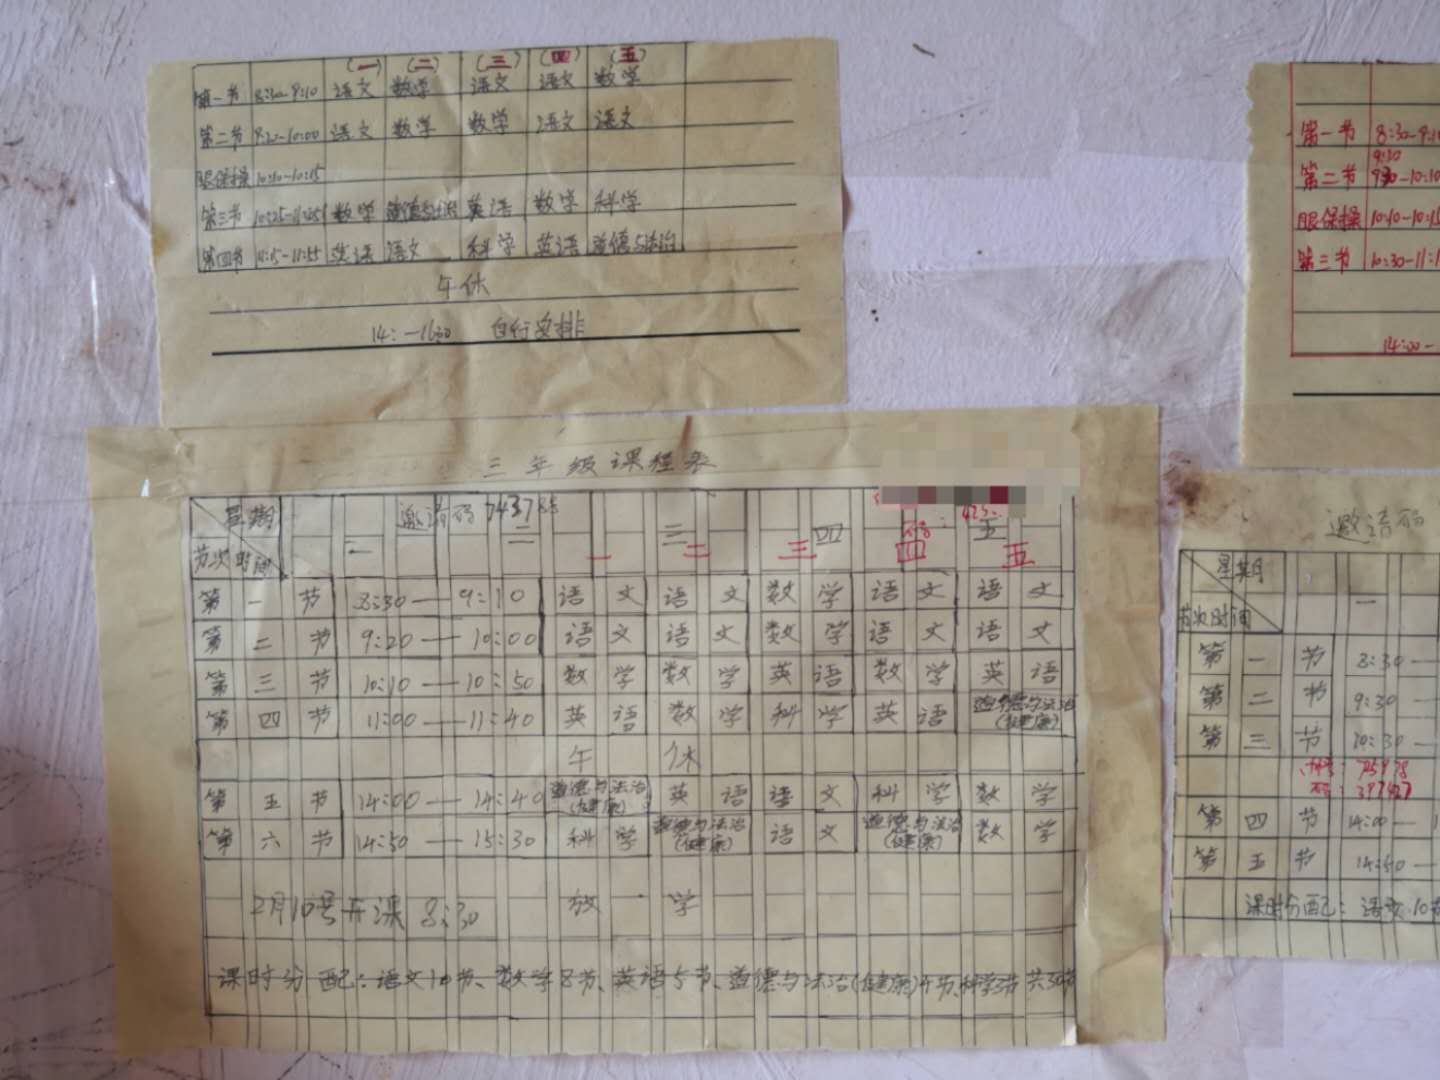 (一) (二) (三) (四) (五)
第一节 8:30-9:10 语文 数学 语文 语文 数学
第二节 9:20-10:00 语文 数学 数学 语文 语文
眼保操 10:10-10:15
第三节 数学 英语 数学 科学
第四节 11:15-11:55 英语 语文 科学 英语 道德与法治
午休
14:-1630 自行安排
第一节 8:30-9:10
9:30
第二节 -10:10
眼保操 10:10-10:15
第三节 10:30-11:1
14:00-
三年级课程表
星期 邀请码 二 三 四 五
节次 时间 一 二 三 四 五
第一节 8:30—9:10 语文 语文 数学 语文 语文
第二节 9:20—10:00 语文 语文 数学 语文 语文
第三节 10:10—10:50 数学 数学 英语 数学 英语
第四节 11:00—11:40 英语 数学 科学 英语 道德与法治(健康)
午休
第五节 14:00—14:40 道德与法治(健康) 英语 语文 科学 数学
第六节 14:50—15:30 科学 道德与法治(健康) 语文 道德与法治(健康) 数学
2月10号开课 8:30 放学
课时分配:语文10节、数学8节、英语5节、道德与法治(健康)4节、科学3节 共30节
邀请码
星期 一
节次 时间
第一节 8:30—
第二节 9:30—
第三节 10:30—
第四节 14:00—1
第五节 14:50—
课时分配:语文10节